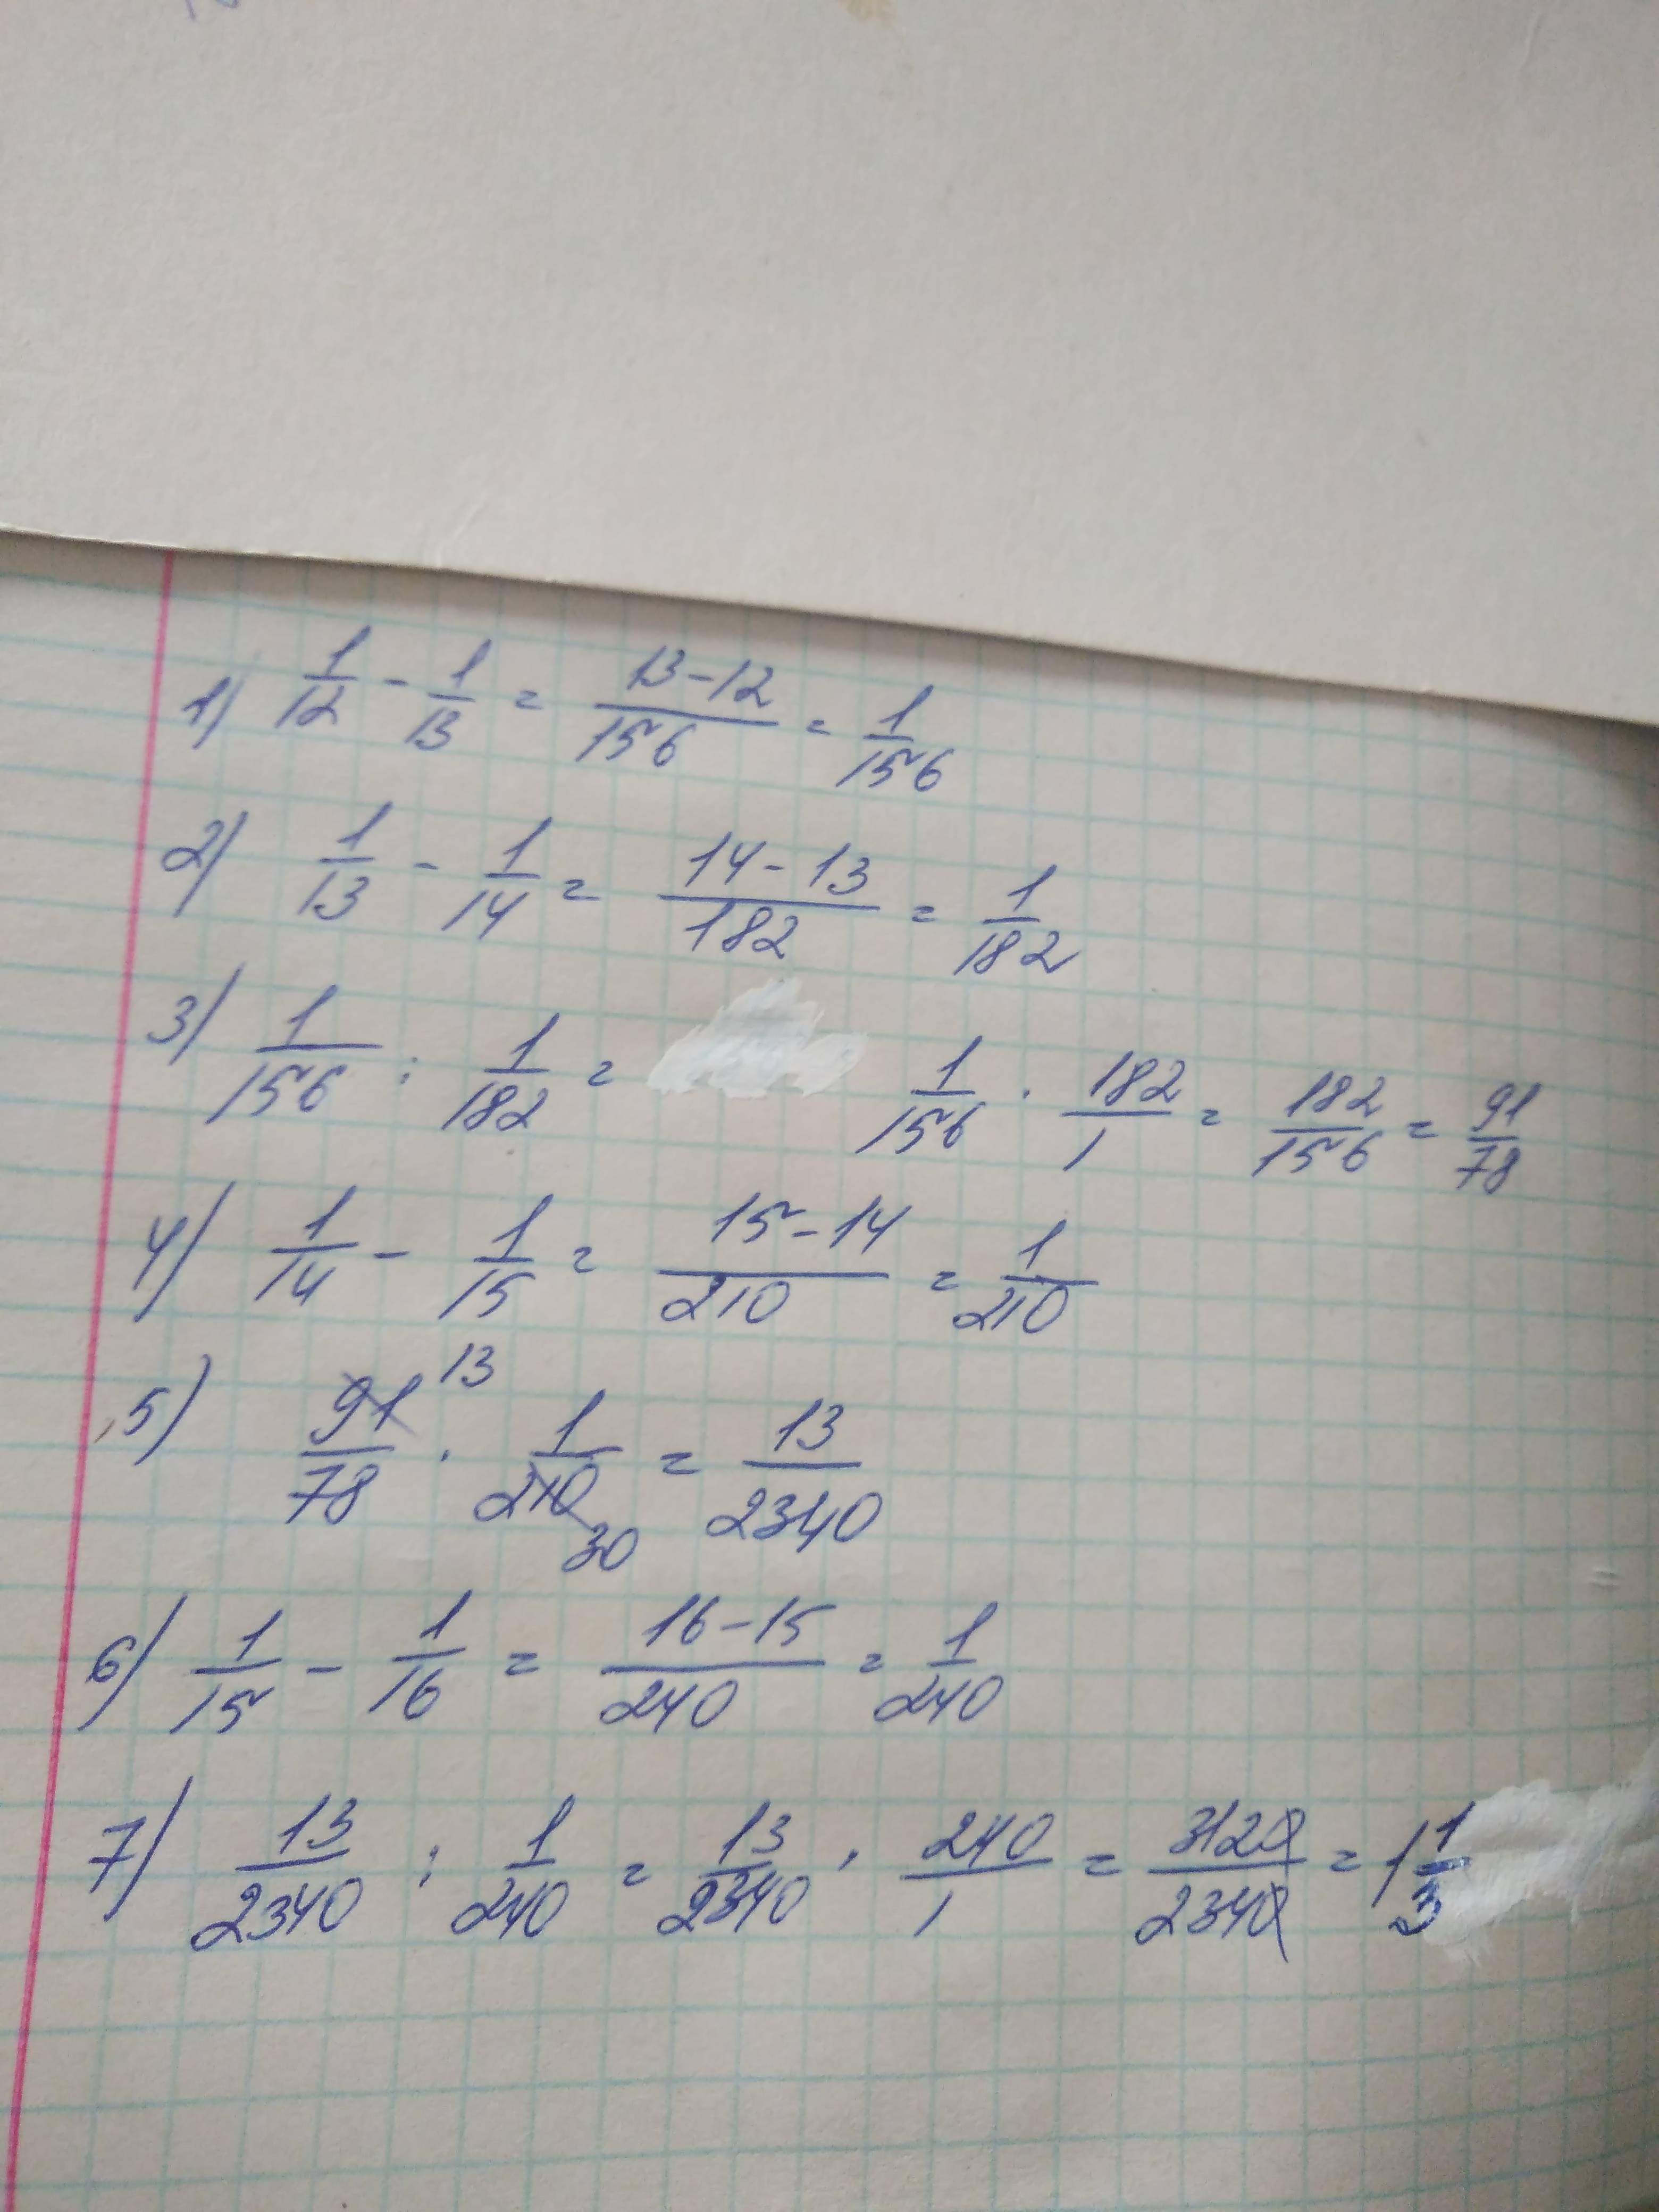 1) 1/12 - 1/13 = 13-12/156 = 1/156
2) 1/13 - 1/14 = 14-13/182 = 1/182
3) 1/156 : 1/182 = 1/156 · 182/1 = 182/156 = 91/78
4) 1/14 - 1/15 = 15-14/210 = 1/210
5) 91/78 13 · 1/210 30 = 13/2340
6) 1/15 - 1/16 = 16-15/240 = 1/240
7) 13/2340 : 1/240 = 13/2340 · 240/1 = 3120/2340 = 1 1/3